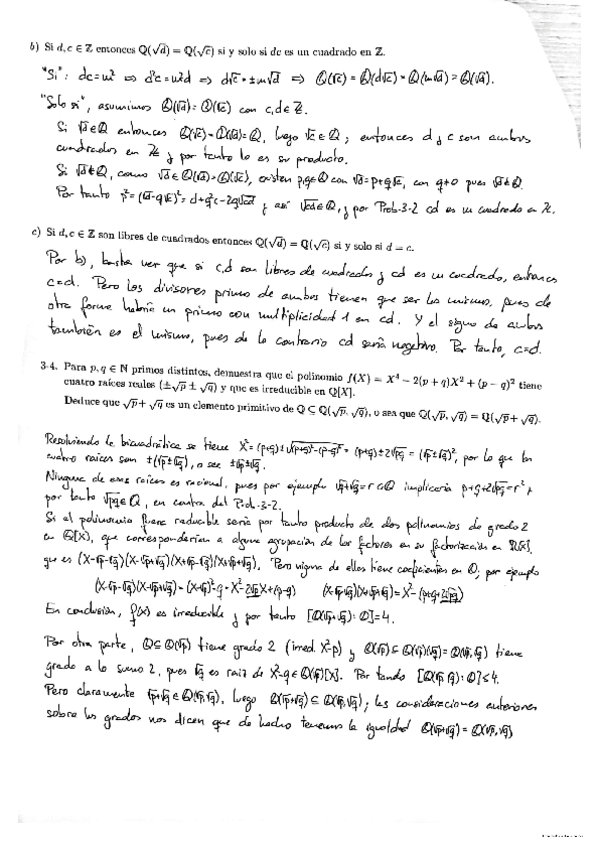 b) Si d, c ∈ Z entonces Q(√d) = Q(√c) si y solo si dc es un cuadrado en Z.
"Si": dc = m² ⇒ d²c = m²d ⇒ d√c = ±m√d ⇒ Q(√c) = Q(d√c) = Q(m√d) = Q(√d).
"Solo si", asumimos Q(√d) = Q(√c) con c,d ∈ Z.
Si √d ∈ Q entonces Q(√c) = Q(√d) = Q, luego √c ∈ Q; entonces d y c son ambos
cuadrados en Z y por tanto lo es su producto.
Si √d ∉ Q, como √d ∈ Q(√d) = Q(√c), existen p,q ∈ Q con √d = p+q√c, con q≠0 pues √d ∉ Q.
Por tanto p² = (√d-q√c)² = d+q²c-2q√cd y así √cd ∈ Q, y por Prob.3-2 cd es un cuadrado en Z.
c) Si d, c ∈ Z son libres de cuadrados entonces Q(√d) = Q(√c) si y solo si d = c.
Por b), basta ver que si c,d son libres de cuadrados y cd es un cuadrado, entonces
c=d. Pero los divisores primos de ambos tienen que ser los mismos, pues de
otra forma habría un primo con multiplicidad 1 en cd. Y el signo de ambos
también es el mismo, pues de lo contrario cd sería negativo. Por tanto, c=d.
3-4. Para p, q ∈ N primos distintos, demuestra que el polinomio f(X) = X⁴ − 2(p + q)X² + (p − q)² tiene
cuatro raíces reales (±√p ± √q) y que es irreducible en Q[X].
Deduce que √p + √q es un elemento primitivo de Q ⊆ Q(√p, √q), o sea que Q(√p, √q) = Q(√p + √q).
Resolviendo la bicuadrática se tiene X² = (p+q) ± √(p+q)²-(p-q)² = (p+q) ± 2√pq = (√p ± √q)², por lo que las
cuatro raíces son ±(√p ± √q), o sea ±√p ± √q.
Ninguna de esas raíces es racional, pues por ejemplo √p+√q = r ∈ Q implicaría p+q+2√pq = r² y
por tanto √pq ∈ Q, en contra del Prob.3-2.
Si el polinomio fuera reducible sería por tanto producto de dos polinomios de grado 2
en Q[X], que corresponderían a alguna agrupación de los factores en su factorización en R[X],
que es (X-√p-√q)(X-√p+√q)(X+√p-√q)(X+√p+√q). Pero ninguno de ellos tiene coeficientes en Q: por ejemplo
(X-√p-√q)(X-√p+√q) = (X-√p)²-q = X²-2√pX+(p-q) (X-√p-√q)(X+√p+√q) = X²-(p+q+2√pq)
En conclusión, f(X) es irreducible y por tanto [Q(√p+√q):Q]=4.
Por otra parte, Q ⊆ Q(√p) tiene grado 2 (irred. X²-p) y Q(√p) ⊆ Q(√p)(√q) = Q(√p,√q) tiene
grado a lo sumo 2, pues √q es raíz de X²-q ∈ Q(√p)[X]. Por tanto [Q(√p,√q):Q] ≤ 4.
Pero claramente √p+√q ∈ Q(√p,√q), luego Q(√p+√q) ⊆ Q(√p,√q); las consideraciones anteriores
sobre los grados nos dicen que de hecho tenemos la igualdad Q(√p+√q) = Q(√p,√q)